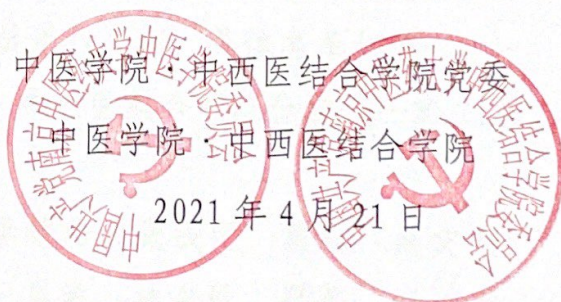 中医学院·中西医结合学院党委
中医学院·中西医结合学院
2021年4月21日
中国共产党南京中医药大学中医学院委员会
中国共产党南京中医药大学中西医结合学院委员会